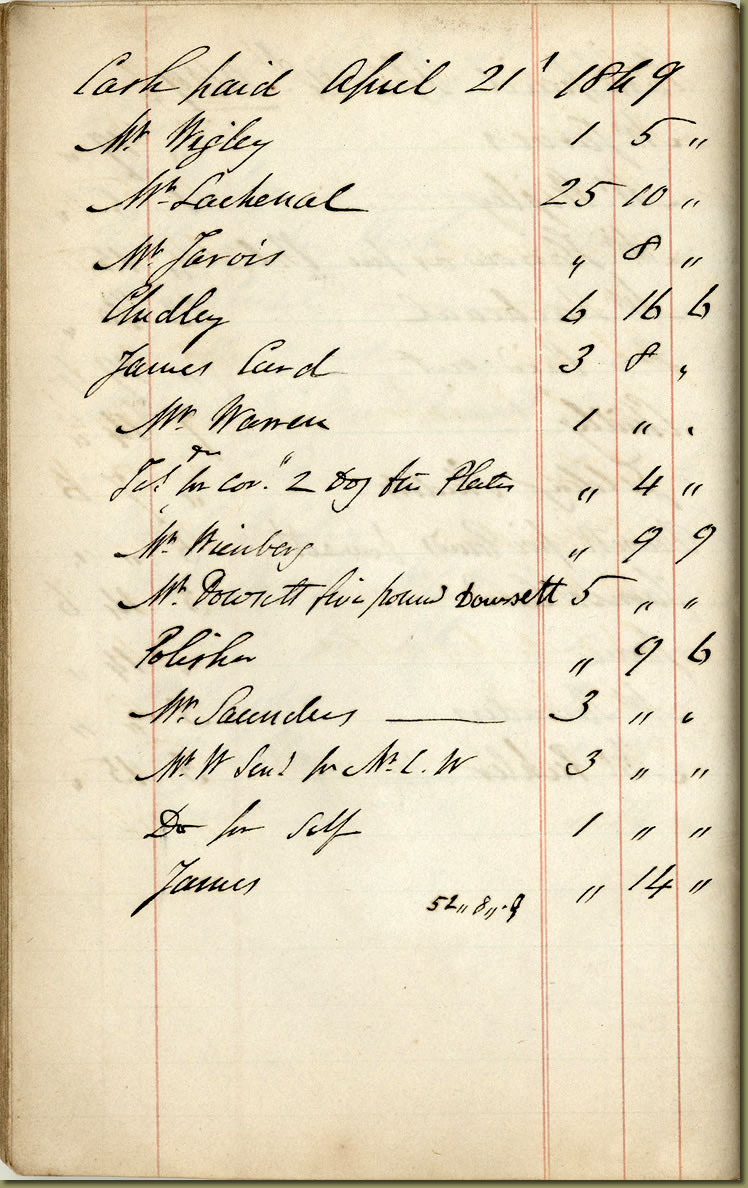 Cash paid April 21st 1849
Mr. Wigley 1 5 "
Mr. Lachenal 25 10 "
Mr. Jarvis " 8 "
Chidley 6 16 6
James Card 3 8 "
Mr. Warren 1 " "
for 2 Doz Plates " 4 "
Mr. Wienberg " 9 9
Mr. Dowsett five pound Dowsett 5 " "
Polisher " 9 6
Mr. Saunders — 3 " "
Mr. W Senr for Mr. C. W 3 " "
Do for Self 1 " "
James " 14 "
52 " 8 " 9